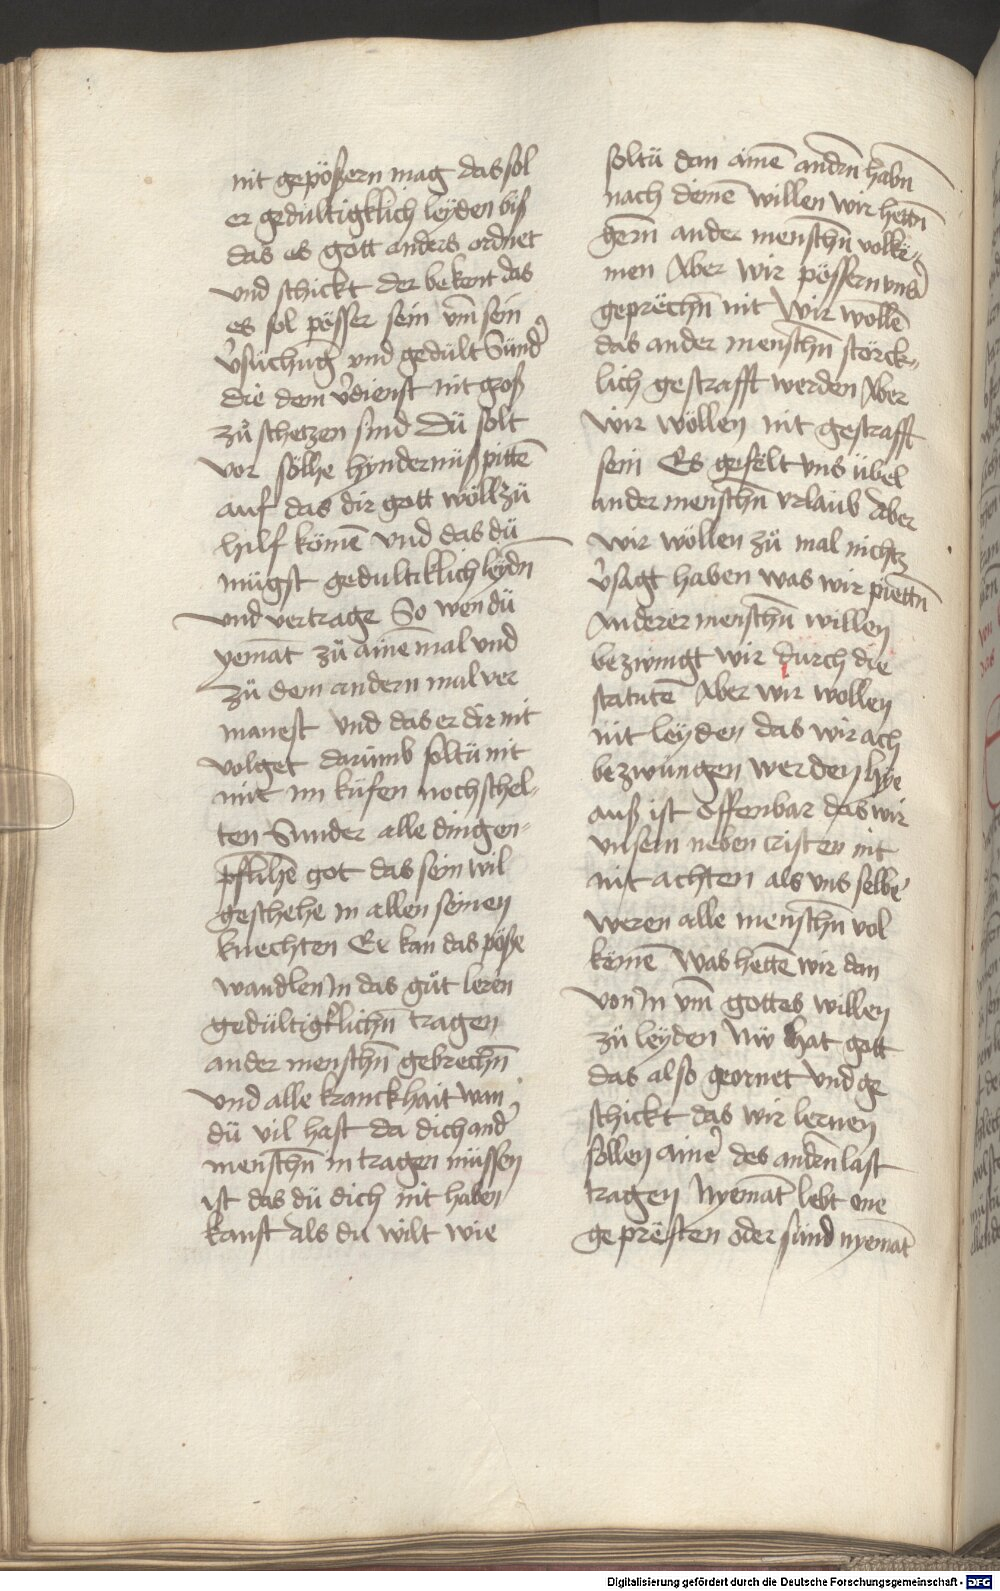 nit gepößern mag das sol
er gedultigklich leyden biß
das es gott anders ordnet
und schickt der bekent das
es sol pösser sein um̄ sein
v̉süchung und gedült Sünd̉
die dem v̉dienst nit groß
zů schetzen sind Dü solt
vor söllhe hyndernüß pitten̄
auf das dir gott wöll zü
hilf kömē und das dü
mügst gedultiklich leydn̄
und vertrage So wen dü
yemāt zů ainē mal und
zů dem andern mal ver
manest und das er dir nit
volget darumb soltü nit
mit im küfen noch schel-
ten Sunder alle ding en-
pflihē got das sein wil
geschehe in allen seinen
knechten Er kan das pöße
wandlen in das gůt leren
gedültigklichn̄ tragen
ander menschn̄ gebrechn̄
und alle kranckhait wan
dü vil hast da dich and̉
menschn̄ in tragen müssen
ist das dü dich nit haben
kanst als du wilt wie
soltü dan ainē andrn̄ habn̄
nach deinē willen wir hettn̄
gern̄ ander menschn̄ volkü-
men Aber wir pössern uns̉
geprechn̄ nit Wir wöllē
das ander menschn̄ störck-
lich gestrafft werden Aber
wir wöllen nit gestrafft
sein Es gefelt uns übel
ander menschn̄ urlaub Aber
wir wöllen zů mal nichtz
v̉sagt haben was wir piettn̄
Anderer menschn̄ willen
bezwingt wir durch die
statutē Aber wir wollen
nit leyden das wir ach
bezwungen werden hye
auß ist offenbar das wir
unsern neben cristen nit
nit achten als uns selbe̓
weren alle menschn̄ vol
kömē Was hettē wir dan
von in um̄ gottes willen
zü leyden Nw hat gott
das also geornet und ge
schickt das wir lernen
söllen aine̓ des andrn̄ last
tragen Nyemāt lebt one
geprësten oder sünd nyemāt
Digitalisierung gefördert durch die Deutsche Forschungsgemeinschaft - DFG